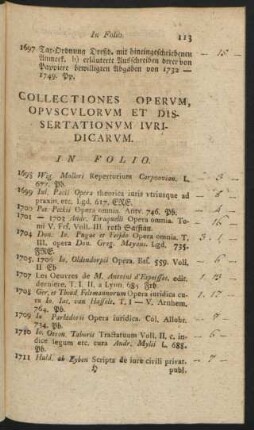 In Folio. 113
1697 Tax-Ordnung Dresd. mit hineingeschriebenen
Anmerk. b) erläuterte Ausschreiben derer von
Pappiere bewilligten Abgaben von 1732 —
1749. Pp.
COLLECTIONES OPERVM,
OPVSCVLORVM ET DIS-
SERTATIONVM IVRI-
DICARVM.
IN FOLIO.
1698 Wig. Molleri Repertorium Carpzovian. L.
677. Pb.
1699 Jul. Pacii Opera theorica iuris vtriusque ad
praxin, etc. Lgd. 617. ERE.
1700 Par. Puteis Opera omnia. Antv. 746. Pb.
1701 — 1703 Andr. Tiraquelli Opera omnia. To-
mi V. Fcf. Voll. III roth Saffian.
1704 Don. Jo. Puga et Feijóo Opera omnia T.
III, opera Don. Greg. Mayans. Lgd. 735.
1705. 1706 Jo. Oldendorpii Opera. Bas. 559. Voll.
II Eb
1707 Les Oeuvres de M. Antoine d'Espeisses, edit.
derniere, T. I. II. a Lyon 685 Frb.
1708 Ger. et Thead. Feltmannorum Opera iuridica cu-
ra Jo. Jac. van Hasselt, T. I — V. Arnhem,
764. Pb.
1709 Jo Parladorii Opera iuridica. Col. Allobr.
734. Pb.
1710 Jo. Otton. Taboris Tractatuum Voll. II, c. in-
dice legum etc. cura Andr. Mylii L. 688.
Pb.
1711 Huld. ab Eyben Scripta de iure civili privat.
H publ.